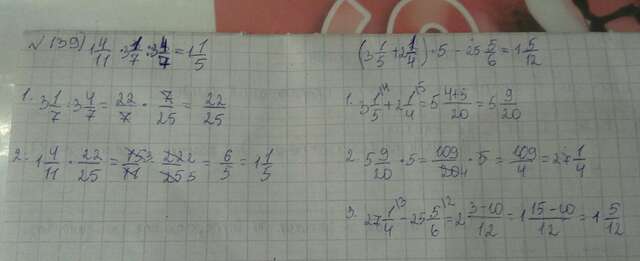 №139) 1 4/11 · 3 1/7 : 3 4/7 = 1 1/5
1. 3 1/7 : 3 4/7 = 22/7 · 7/25 = 22/25
2. 1 4/11 · 22/25 = 15 3/11 · 22 2/25 5 = 6/5 = 1 1/5
(3 1/5 + 2 1/4) · 5 - 25 5/6 = 1 5/12
1. 3 1/5 \4 + 2 1/4 \5 = 5 4+5/20 = 5 9/20
2. 5 9/20 · 5 = 109/20 4 · 5 = 109/4 = 27 1/4
3. 27 1/4 \3 - 25 5/6 \2 = 2 3-10/12 = 1 15-10/12 = 1 5/12